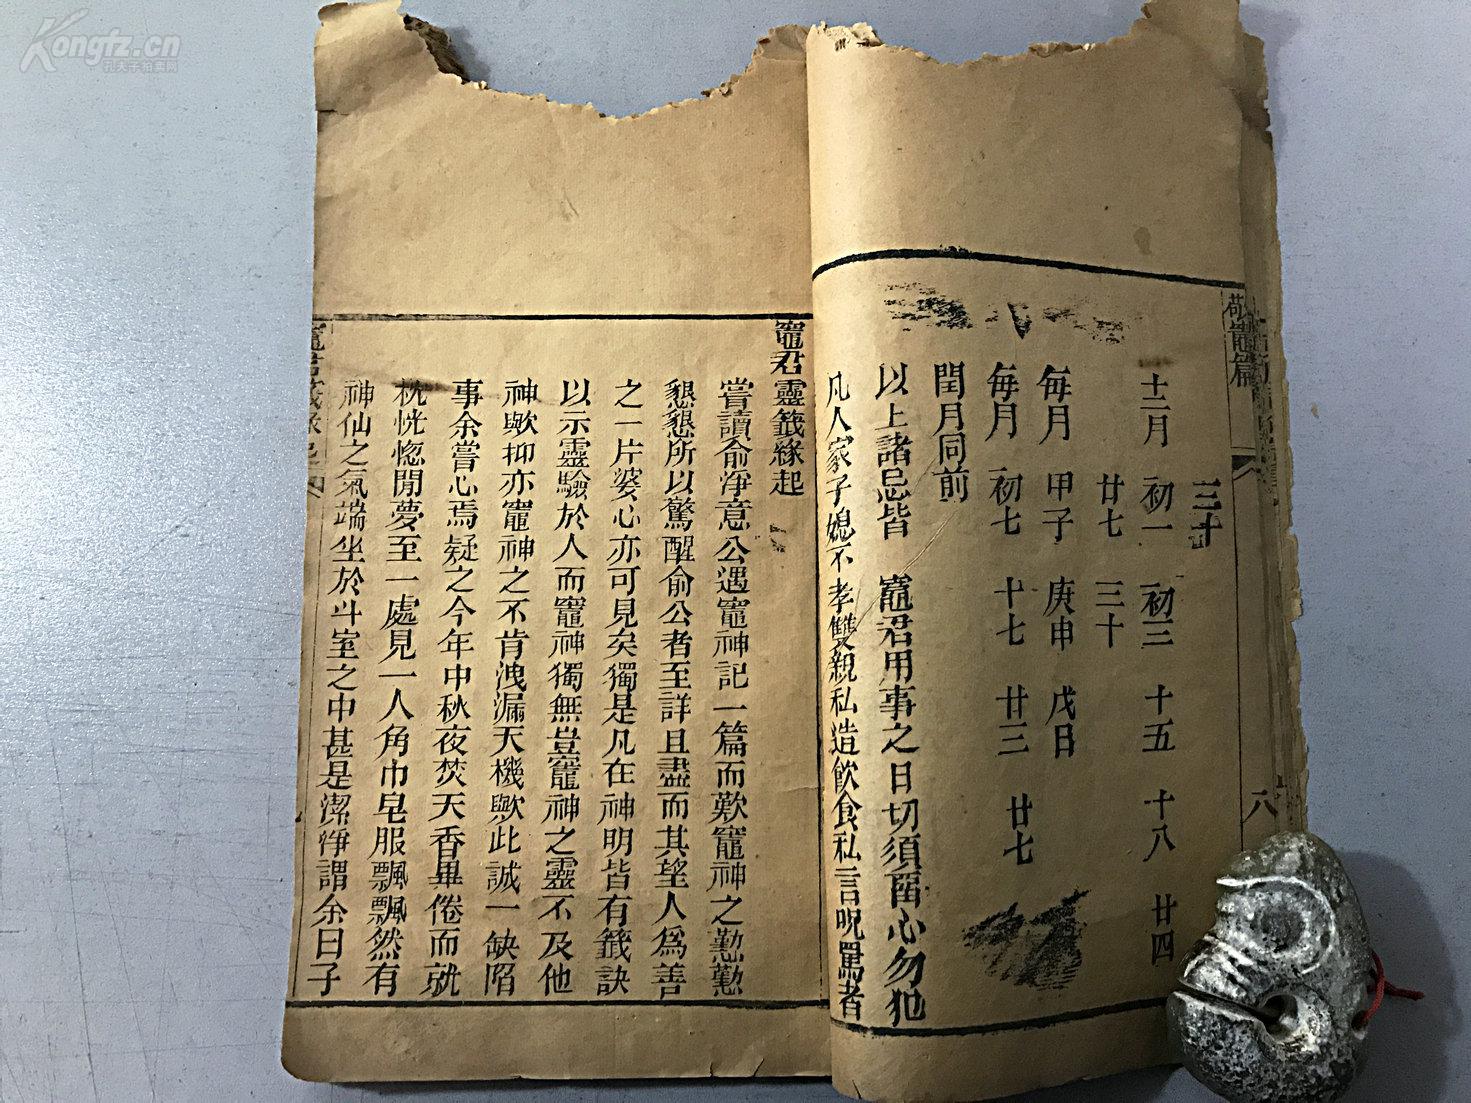 Kongfz.cn
孔夫子拍卖网
敬竈篇
六
三十
十二月 初一 初三 十五 十八 廿四
廿七 三十
每月 甲子 庚申 戊日
每月 初七 十七 廿三 廿七
閏月同前
以上諸忌皆 竈君用事之日切須留心勿犯
凡人家子媳不孝雙親私造飲食私言呪罵者
竈君靈籤緣起
嘗讀俞淨意公遇竈神記一篇而歎竈神之懃懃
懇懇所以驚醒俞公者至詳且盡而其望人為善
之一片婆心亦可見矣獨是凡在神明皆有籤訣
以示靈驗於人而竈神獨無豈竈神之靈不及他
神歟抑亦竈神之不肯洩漏天機歟此誠一缺陷
事余嘗心焉疑之今年中秋夜焚天香畢倦而就
枕恍惚閒夢至一處見一人角巾皂服飄飄然有
神仙之氣端坐於斗室之中甚是潔淨謂余曰子
竈君籤緣起